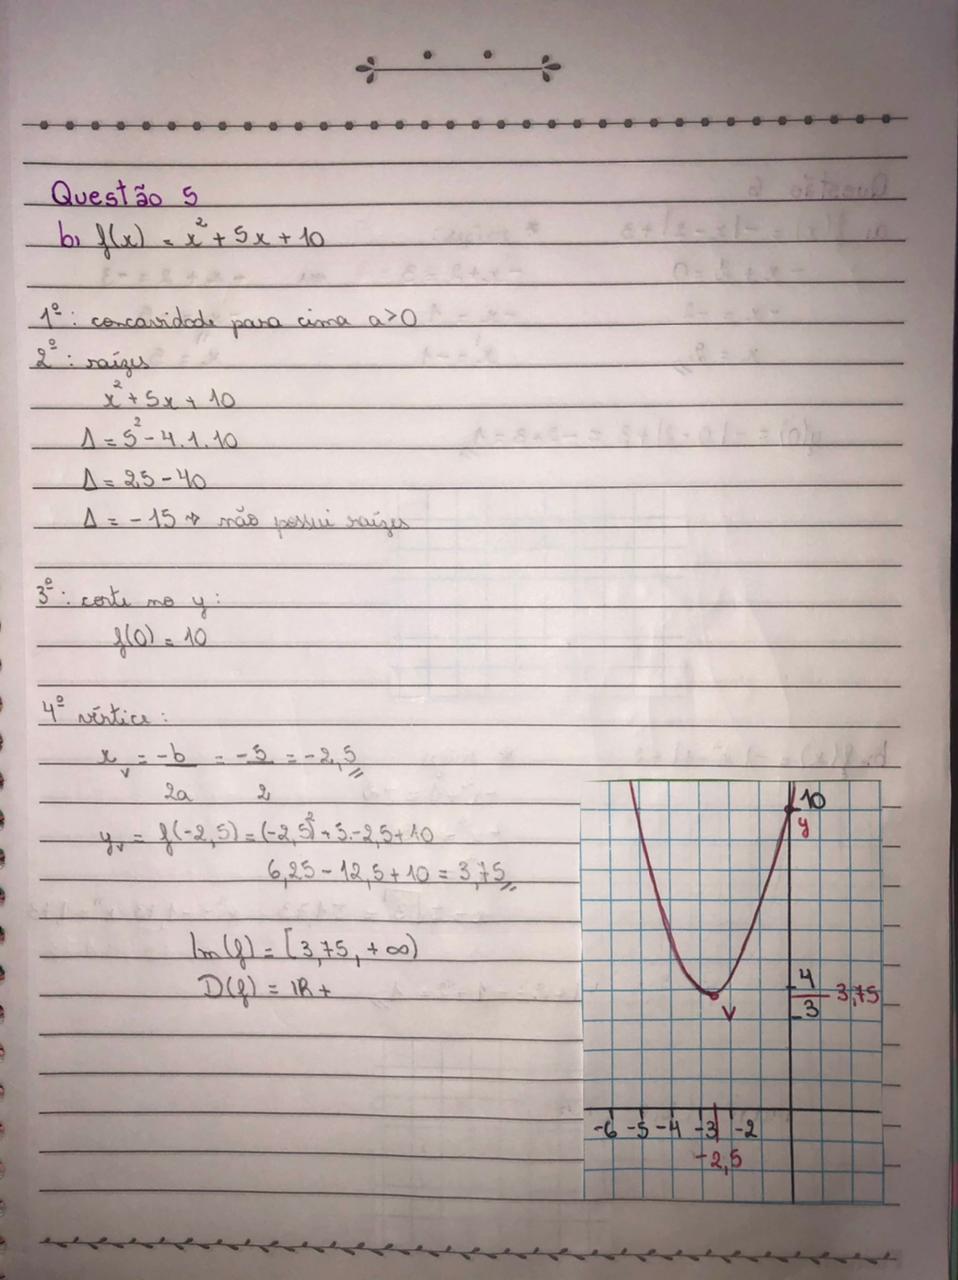 Questão 5
b) f(x) = x² + 5x + 10
1º: concavidade para cima a>0
2º: raízes
x² + 5x + 10
Δ = 5² - 4.1.10
Δ = 25 - 40
Δ = -15 → não possui raízes
3º: corte no y:
f(0) = 10
4º vértice:
xv = -b/2a = -5/2 = -2,5
yv = f(-2,5) = (-2,5)² + 5.-2,5 + 10
6,25 - 12,5 + 10 = 3,75
Im(f) = [3,75, +∞)
D(f) = IR +
10
y
4
3,75
3
V
-6 -5 -4 -3 -2
-2,5